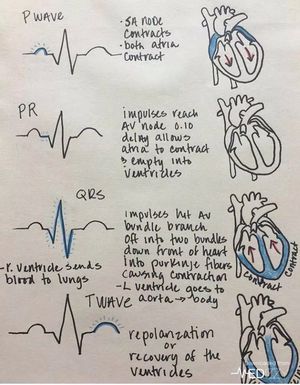 P WAVE
- SA NODE
contracts
- both atria
contract
PR
impulses reach
AV node 0.10
delay allows
atria to contract
& empty into
ventricles
QRS
impulses hit AV
bundle branch
off into two bundles
down front of heart
into purkinje fibers
causing contraction
- r. ventricle sends
blood to lungs
- L ventricle goes to
aorta → body
contract
contract
T WAVE
repolarization
or
recovery of the
ventricles